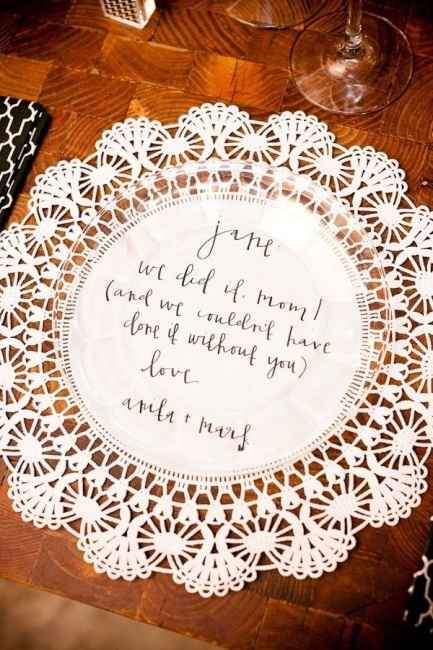 jane.
we did it, mom!
(and we couldn't have
done it without you)
love
anita + mark